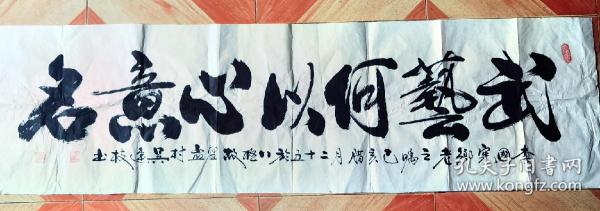 武藝何以心意名
李國寶鄉老之囑己亥臘月二十五於八極故里孟村吳連枝書
孔夫子旧书网
www.kongfz.com